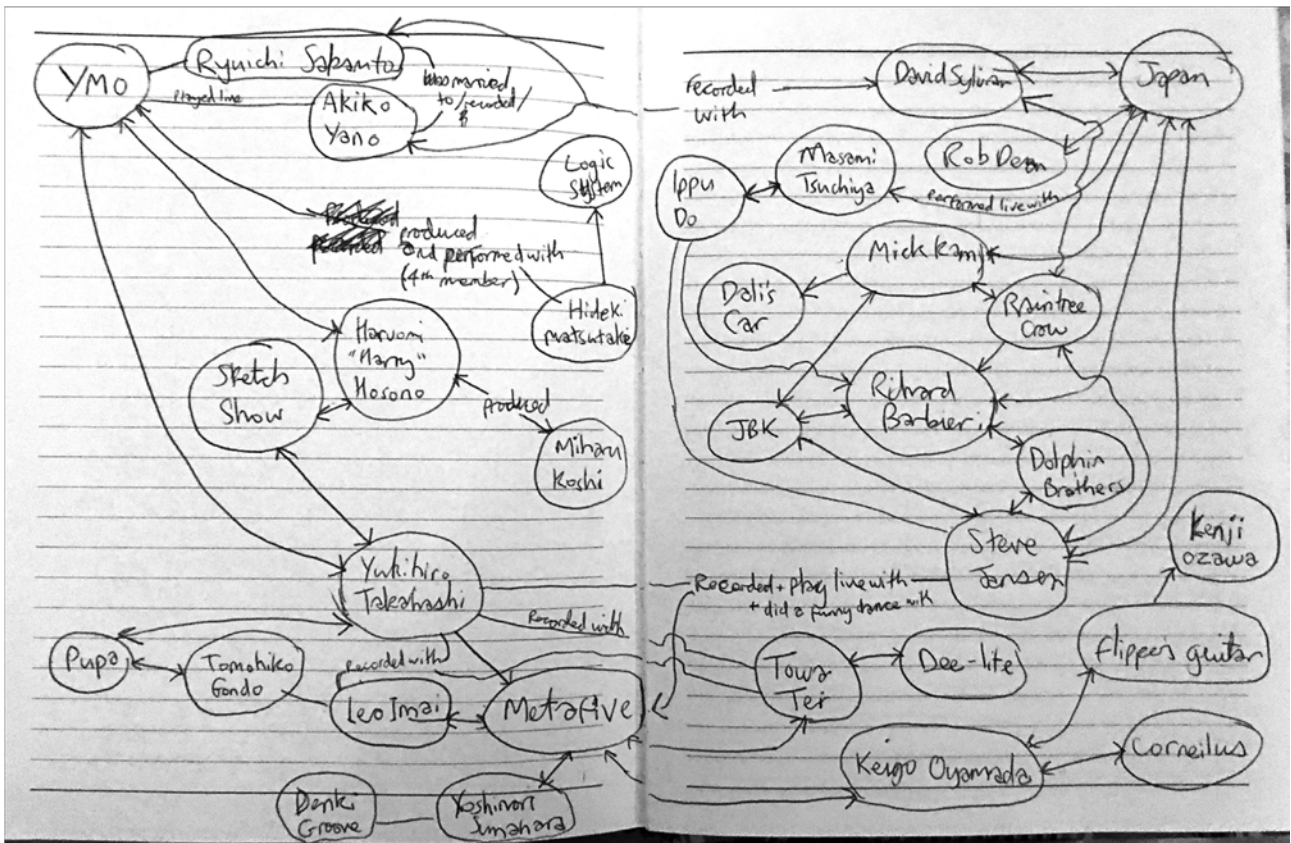 YMO
Ryuichi Sakamto
Played live
Akiko
Yano
was married
to/recorded/
Logic
System
produced
and performed with
(4th member)
Hideki
Matsutake
Haruomi
"Harry"
Hosono
Sketch
Show
Produced
Miharu
Koshi
Yukihiro
Takahashi
Recorded with
Recorded with
Pupa
Tomohiko
Gondo
Leo Imai
Metafive
Denki
Groove
Yoshinori
Sunahara
recorded
with
David Sylvian
Japan
Rob Dean
Masami
Tsuchiya
Ippu
Do
Performed live with
Mick Karn
Dali's
Car
Raintree
Crow
Richard
Barbieri
JBK
Dolphin
Brothers
Steve
Jansen
Kenji
Ozawa
Recorded + play live with
+ did a funny dance with
Towa
Tei
Dee-lite
Flippers guitar
Keigo Oyamada
Corneilus